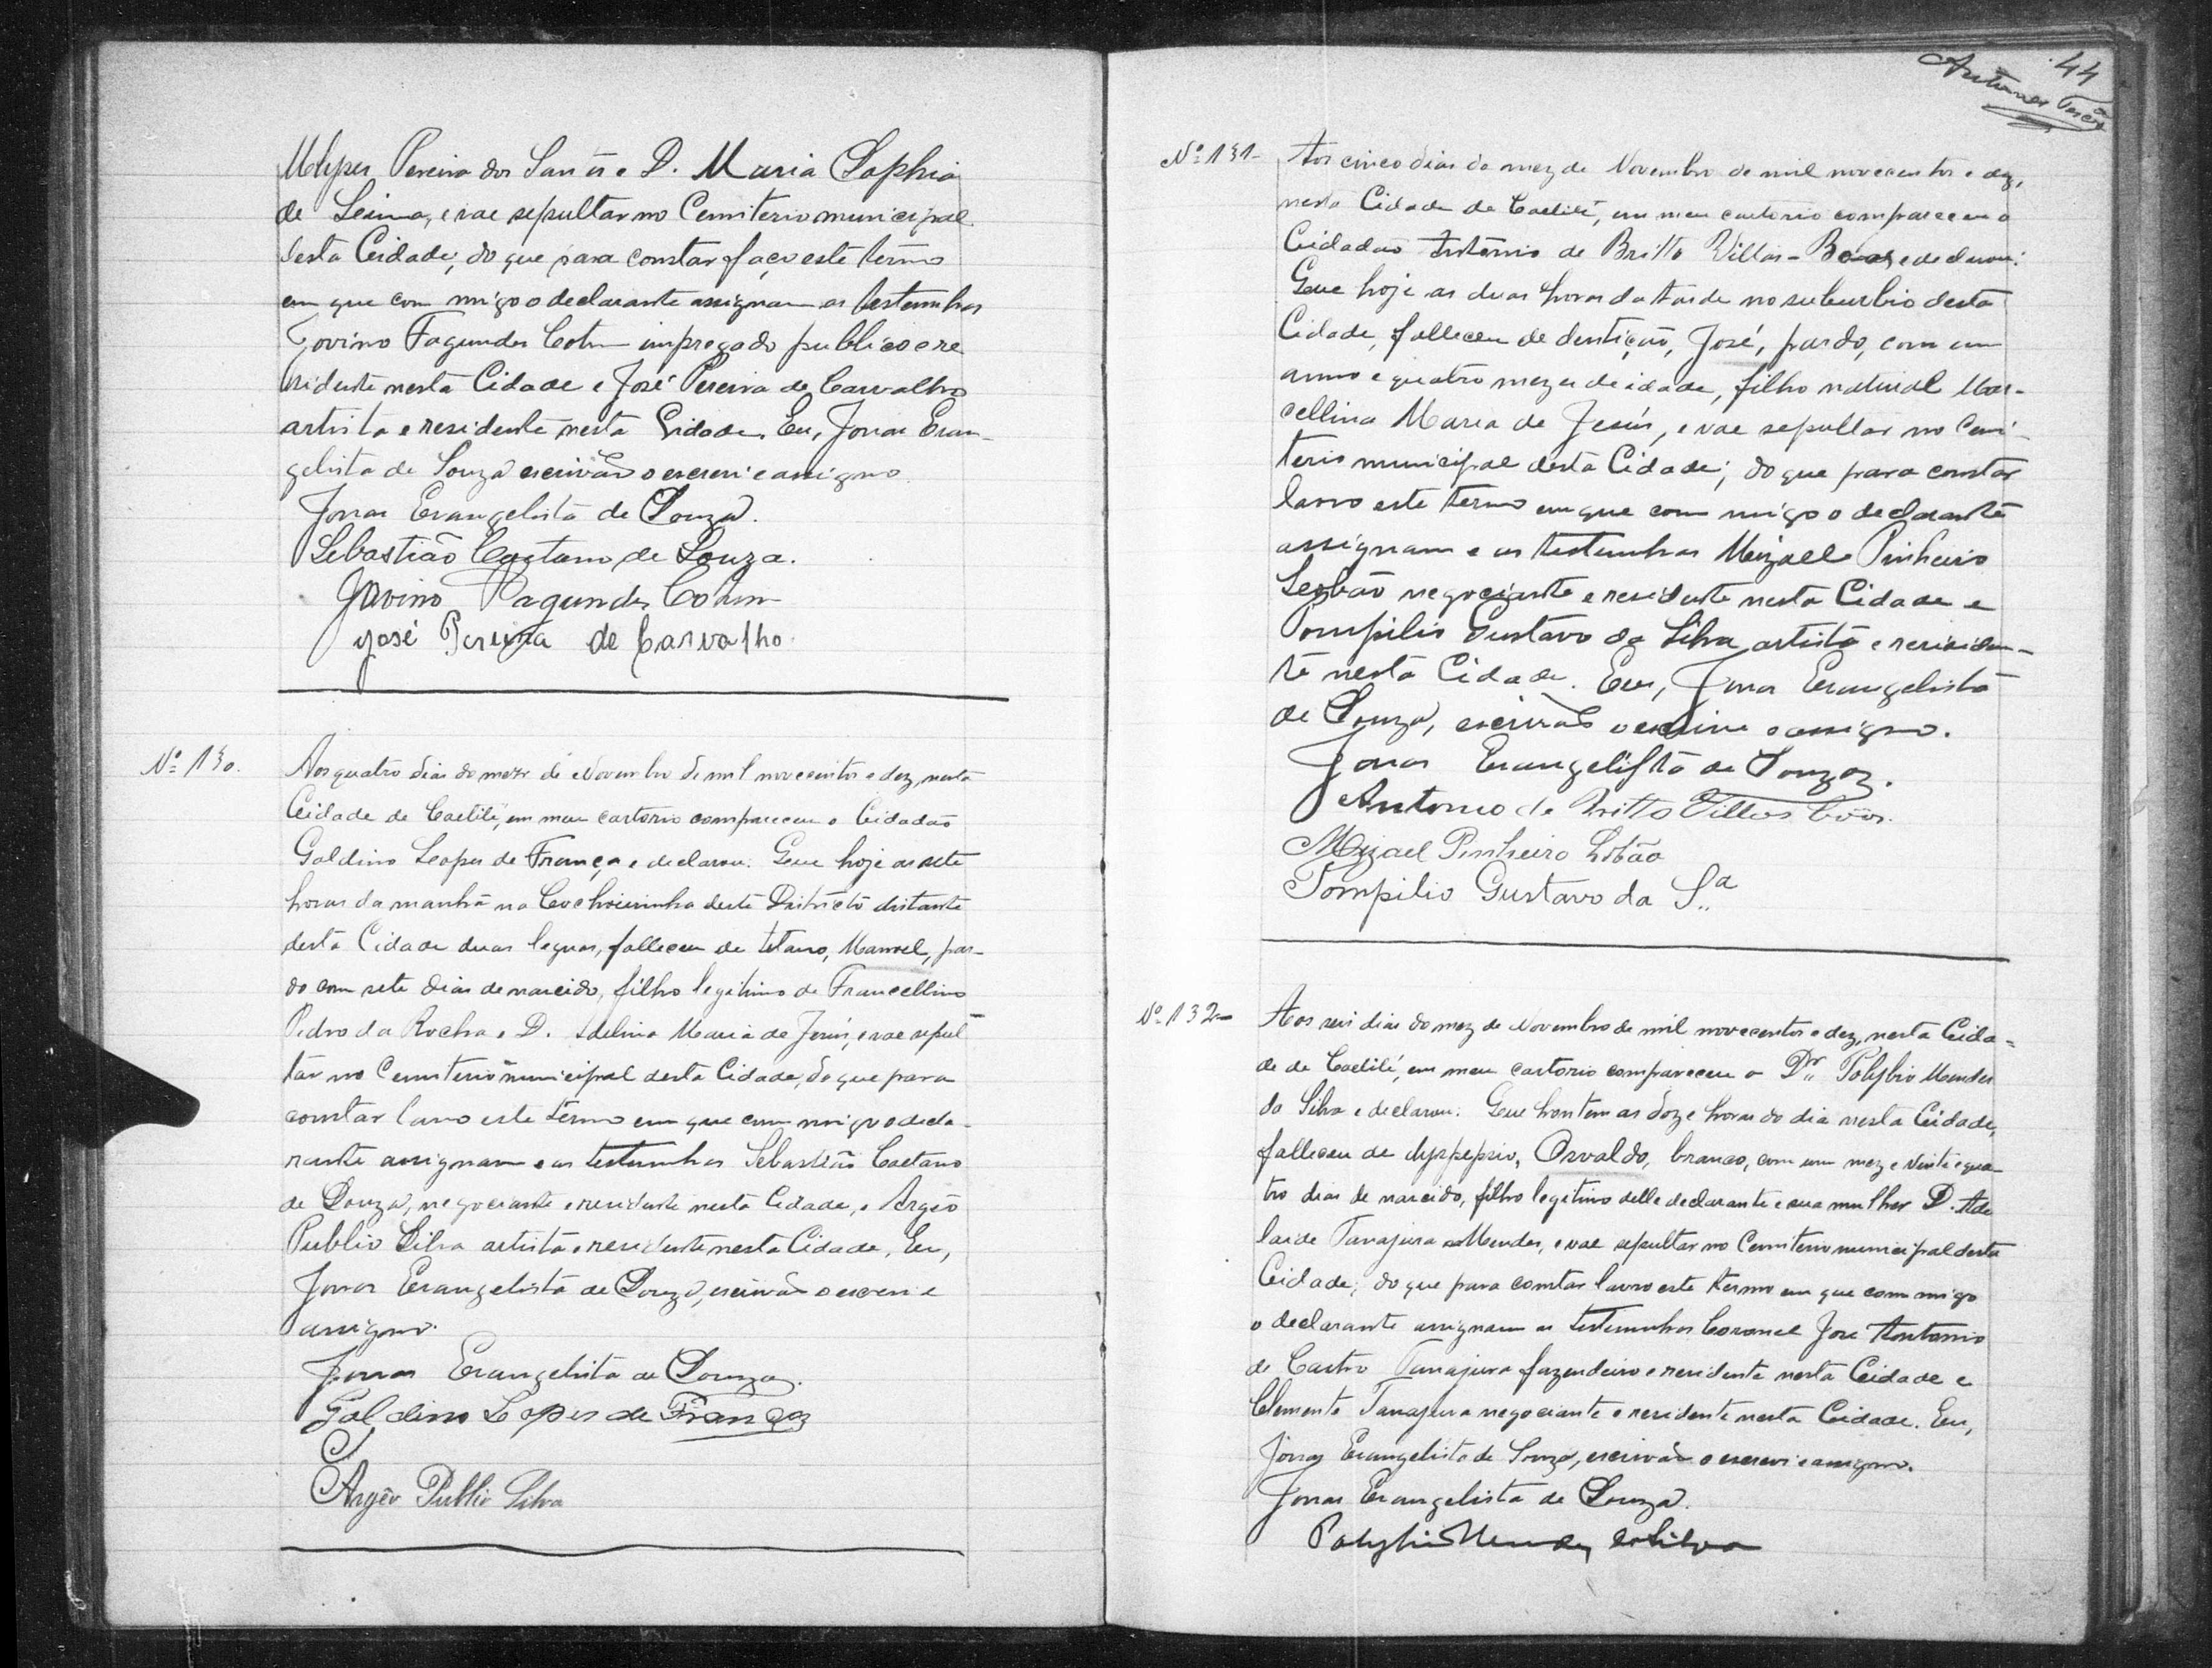 Ulysses Pereira dos San e D. Maria Sophia
de Leima, e vae sepultar no Cemiterio municipal
desta Cidade, do que para constar faço este termo
em que com migo o declarante assignam as testemunhas
Jovino Fagundes Cotrim impregado publico e re
sidente nesta Cidade e José Pereira de Carvalho
artista e residente nesta Cidade. Eu, Jonas Evan-
gelista de Souza escrivão o escrevi e assigno.
Jonas Evangelista de Souza.
Sebastião Caetano de Souza.
Jovino Fagundes Cotrim
José Pereira de Carvalho
Nº 130.
Aos quatro dias do mez de Novembro de mil novecentos e dez, nesta
Cidade de Caetité, em meu cartorio compareceu o Cidadão
Galdino Lopes de França e declarou: Que hoje as sete
horas da manhã na Cachoeirinha deste Districto distante
desta Cidade duas leguas, falleceu de tetano, Manoel, par-
do com sete dias de nascido, filho legitimo de Francellino
Pedro da Rocha e D. Adelina Maria de Jesus, e vae sepul
tar no Cemiterio municipal desta Cidade, do que para
constar lavro este termo em que com migo o decla-
rante assignam e as testemunhas Sebastião Caetano
de Souza, negociante e residente nesta Cidade, e Argeo
Publio Silva artista e residente nesta Cidade. Eu,
Jonas Evangelista de Souza, escrivão o escrevi e
assigno.
Jonas Evangelista de Souza.
Galdino Lopes de França
S
Argeo Publio Silva
44
Antunes
Nº 131-
Aos cinco dias do mez de Novembro de mil novecentos e dez,
nesta Cidade de Caetité, em meu cartorio compareceu o
Cidadão Antonio de Britto Villas-Boas e declarou:
Que hoje as duas horas da tarde no suburbio desta
Cidade, falleceu de dentição, José, pardo, com um
anno e quatro mezes de idade, filho natural Mar-
cellina Maria de Jesus, e vae sepultar no Cemi-
terio municipal desta Cidade; do que para constar
lavro este termo em que com migo o declarante
assignam e as testemunhas Mizael Pinheiro
Lobão negociante e residente nesta Cidade e
Pompilio Gustavo da Silva artista e residen-
te nesta Cidade. Eu, Jonas Evangelista
de Souza, escrivão o escrevi e assigno.
Jonas Evangelista de Souza.
Antonio de Britto Villas Bôas.
Mizael Pinheiro Lobão
Pompilio Gustavo da Sª
Nº 132-
Aos seis dias do mez de Novembro de mil novecentos e dez, nesta Cida=
de de Caetité, em meu cartorio compareceu o Dr. Polybio Mendes
da Silva e declarou: Que hontem as doze horas do dia nesta Cidade,
falleceu de dyspepsia, Osvaldo, branco, com um mez e vinte e qua-
tro dias de nascido, filho legitimo delle declarante e sua mulher D. Ade
laide Tanajura Mendes, e vae sepultar no Cemiterio municipal desta
Cidade; do que para constar lavro este termo em que com migo
o declarante assignam as testemunhas Coronel José Antonio
de Castro Tanajura fazendeiro e residente nesta Cidade e
Clemente Tanajura negociante e residente nesta Cidade. Eu,
Jonas Evangelista de Souza, escrivão o escrevi e assigno.
Jonas Evangelista de Souza.
Polybio Mendes da Silva